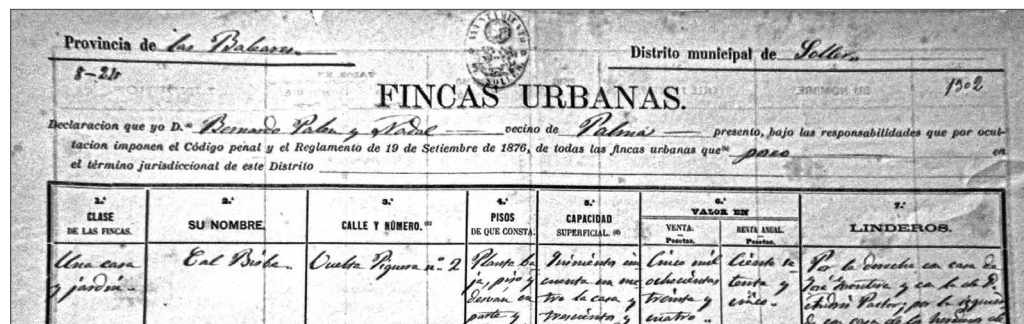 Provincia de las Baleares
Distrito municipal de Soller
8-21
1902
FINCAS URBANAS.
Declaracion que yo D.ⁿ Bernardo Palou y Nadal vecino de Palma presento, bajo las responsabilidades que por ocul-
tacion imponen el Código penal y el Reglamento de 19 de Setiembre de 1876, de todas las fincas urbanas que poseo en
el término jurisdiccional de este Distrito
1.ª CLASE DE LAS FINCAS.
2.ª SU NOMBRE.
3.ª CALLE Y NÚMERO.
4.ª PISOS DE QUE CONSTA.
5.ª CAPACIDAD SUPERFICIAL.
6.ª VALOR EN
VENTA. Pesetas.
RENTA ANUAL. Pesetas.
7.ª LINDEROS.
Una casa y jardin
Cal Bisbe
Vuelta Piquera nº 2
Planta ba
ja, piso y
desvan en
parte y
Quinientos cin
cuenta un me
tro la casa y
trescientos y
Cinco mil
ochocientas
treinta y
cuatro
Ciento se
tenta y
cinco
Por la derecha con casa de
José y con la de D.
Pastor; por la izquier
da con casa de la herederos de